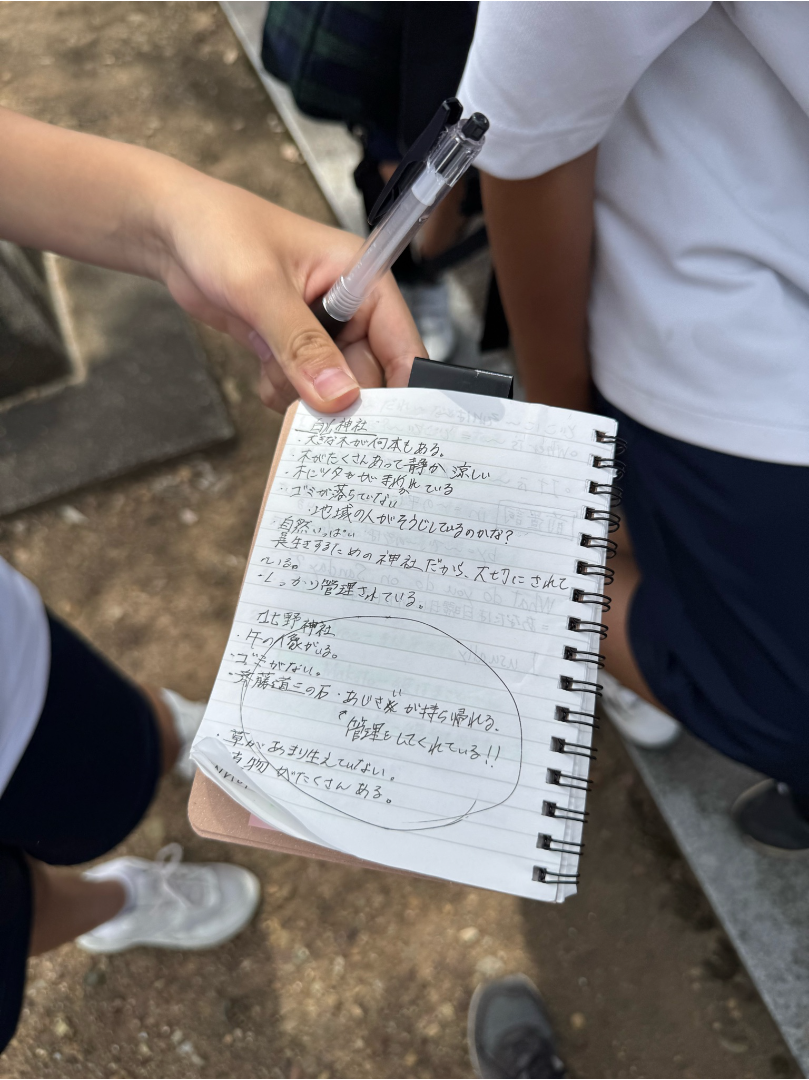 白山神社
・大きな木が何本もある。
・木がたくさんあって静か、涼しい
・木にツタがまかれている
・ゴミが落ちていない
・地域の人がそうじしているのかな?
・自然いっぱい
長生きするための神社だから、大切にされて
いる。
・しっかり管理されている。
北野神社
・牛の像がある。
・ゴミがない。
・斉藤道三の石・あじさい が持ち帰れる。
管理をしてくれている!!
・草があまり生えていない。
物がたくさんある。
What do you on
usually